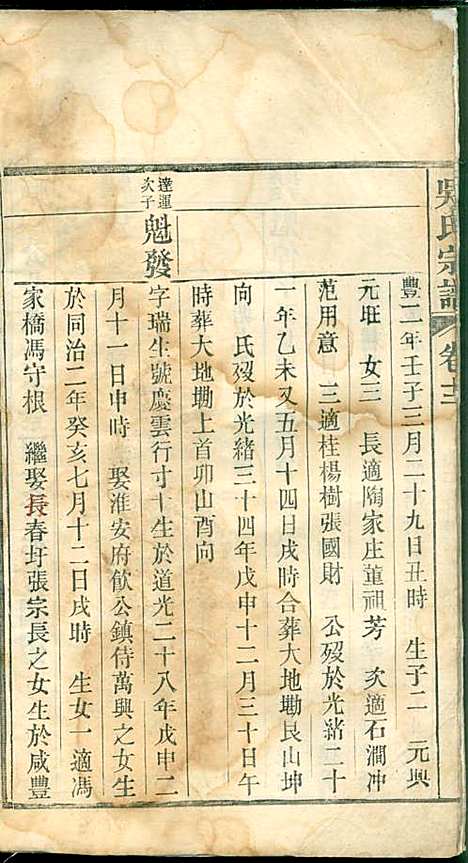 吳氏宗譜 卷十三
豐二年壬子三月二十九日丑時 生子二 元興
元旺 女三 長適陶家庄董祖芳 次適石澗冲
范用意 三適桂楊樹張國財 公歿於光緒二十
一年乙未又五月十四日戌時合葬大地墈艮山坤
向 氏歿於光緒三十四年戊申十二月三十日午
時葬大地墈上首卯山酉向
達運次子
魁發
字瑞生號慶雲行寸十生於道光二十八年戊申二
月十一日申時 娶淮安府飲公鎮侍萬興之女生
於同治二年癸亥七月十二日戌時 生女一適馮
家橋馮守根 繼娶長春圩張宗長之女生於咸豐